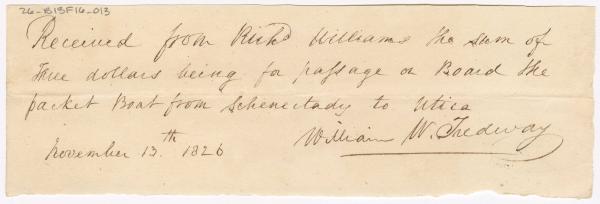 26-B13F16-013
Received from Richd Williams the sum of
dollars being for passage on Board the
packet Boat from Schenectady to Utica
William W. Tredway
November 13.th 1826